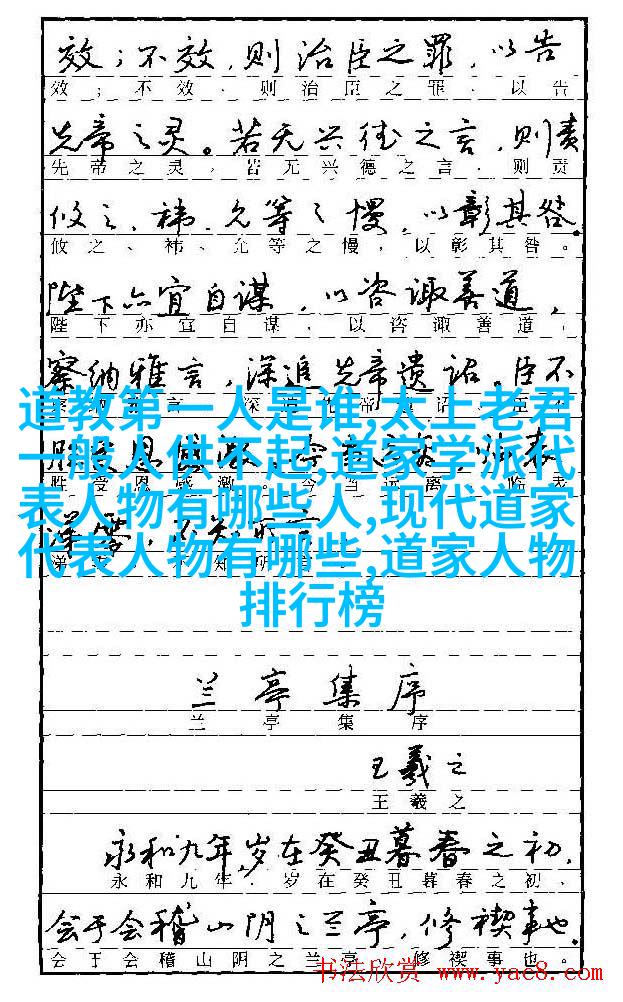 效；不效，则治臣之罪，以告
效；不效、则治臣之罪、以告
先帝之灵。若无兴德之言，则责
先帝之灵，若无兴德之言、则责
攸之、祎、允等之慢，以彰其咎。
攸之、祎、允等之慢，以彰其咎。
陛下亦宜自谋，以咨诹善道，
陛下亦宜自谋、以咨诹善道，
察纳雅言，深追先帝遗诏。臣不
道教第一人是谁,太上老君
一般人供不起,道家学派代
表人物有哪些人,现代道家
代表人物有哪些,道家人物
排行榜
胜受恩感激。今当远离，临表
兰亭集序
兰亭集序
王羲之
王羲之
永和九年，岁在癸丑暮春之初，
永和九年．岁在癸丑暮春之初、
会于会稽山阴之兰亭，修禊事也。
会于会稽山阴之兰亭，修禊事也。
书法欣赏 www.yac8.com